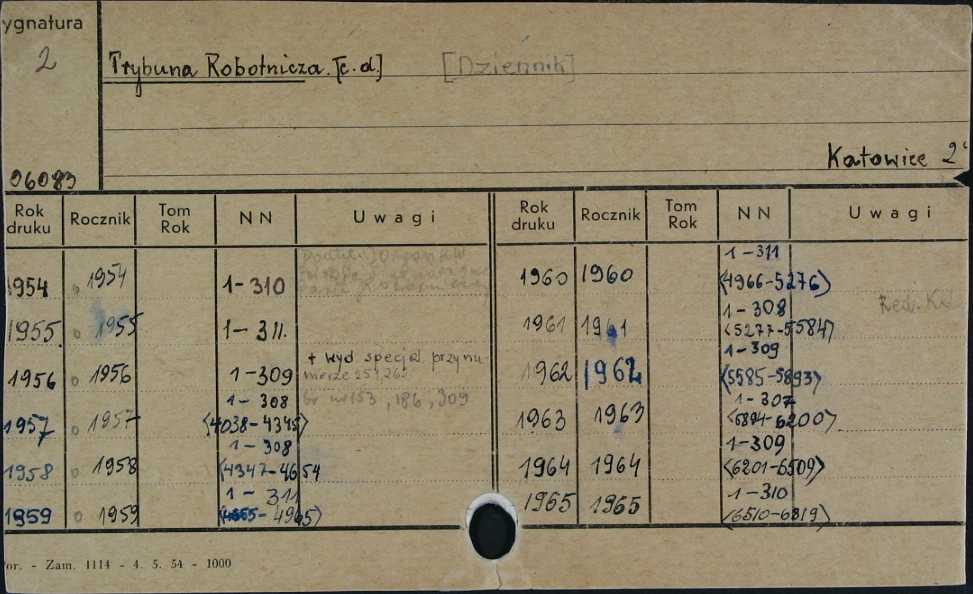 ygnatura
2
Trybuna Robotnicza. [c.d.] [Dziennik]
Katowice 2
06083
Rok druku Rocznik Tom Rok NN Uwagi Rok druku Rocznik Tom Rok NN Uwagi
1954 1954 1-310
1955 1955 1-311.
1956 1956 1-309 + wyd. specjal. przy nu-
merze 257, 262
1957 1957 1-308 br nr 153, 186, 309
<4038-4345>
1958 1958 1-308
<4347-4654
1959 1959 1-311
<4655-4965>
1960 1960 1-311
<4966-5276>
1961 1961 1-308
<5277-5584>
1962 1962 1-309
<5585-5893>
1963 1963 1-307
<5894-6200>
1964 1964 1-309
<6201-6509>
1965 1965 1-310
<6510-6819>
or. - Zam. 1114 - 4. 5. 54 - 1000